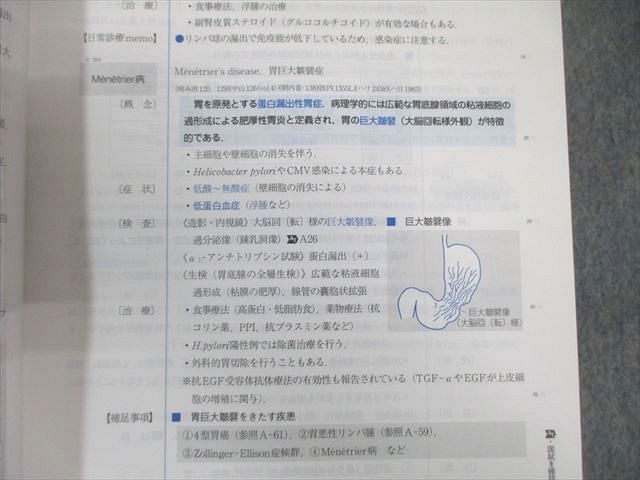 [治 療] ・食事療法，浮腫の治療
・副腎皮質ステロイド（グルココルチコイド）が有効な場合もある.
【日常診療memo】 ●リンパ球の漏出で免疫能が低下しているため，感染症に注意する.
Ménétrier病 Ménétrier's disease，胃巨大皺襞症
[概 念] 胃を原発とする蛋白漏出性胃症．病理学的には広範な胃底腺領域の粘液細胞の
過形成による肥厚性胃炎と定義され，胃の巨大皺襞（大脳回転様外観）が特徴
的である.
・主細胞や壁細胞の消失を伴う.
・Helicobacter pyloriやCMV感染による本症もある.
[症 状] ・低酸～無酸症（壁細胞の消失による）
・低蛋白血症（浮腫など）
[検 査] 《造影・内視鏡》大脳回〔転〕様の巨大皺襞像，
過分泌像（鍾乳洞像） A26
《α₁-アンチトリプシン試験》蛋白漏出（+）
《生検（胃底腺の全層生検）》広範な粘液細胞
過形成（粘膜の肥厚），腺管の嚢胞状拡張
■ 巨大皺襞像
巨大皺襞像
（大脳回〔転〕様）
[治 療] ・食事療法（高蛋白・低脂肪食），薬物療法（抗
コリン薬，PPI，抗プラスミン薬など）
・H.pylori陽性例では除菌治療を行う.
・外科的胃切除を行うこともある.
※抗EGF受容体抗体療法の有効性も報告されている（TGF-αやEGFが上皮細
胞の増殖に関与）.
【補足事項】 ■ 胃巨大皺襞をきたす疾患
①4型胃癌（参照A-61），②胃悪性リンパ腫（参照A-59），
③Zollinger-Ellison症候群，④Ménétrier病 など